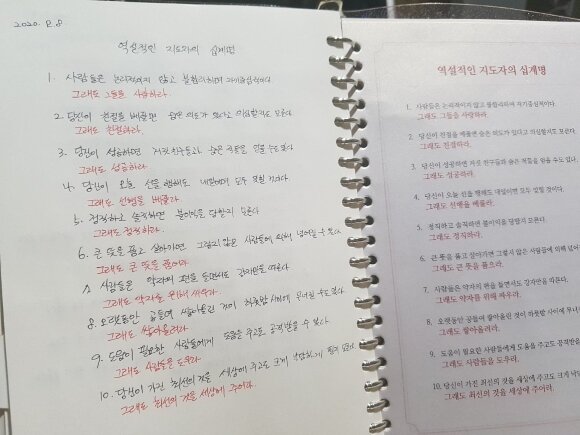 2020. 8. 8.
역설적인 지도자의 십계명
1. 사람들은 논리적이지 않고 불합리하며 자기중심적이다.
그래도 그들을 사랑하라.
2. 당신이 친절을 베풀면 숨은 의도가 있다고 의심할지도 모른다.
그래도 친절하라.
3. 당신이 성공하면 거짓 친구들과 참된 적들을 얻을 수도 있다.
그래도 성공하라.
4. 당신이 오늘 선을 행해도 내일이면 모두 잊힐 것이다.
그래도 선행을 베풀라.
5. 정직하고 솔직하면 불이익을 당할지 모른다.
그래도 정직하라.
6. 큰 뜻을 품고 살아가면 그렇지 않은 사람들에 의해 넘어질 수 있다.
그래도 큰 뜻을 품어라.
7. 사람들은 약자의 편을 들면서도 강자만을 따른다.
그래도 약자를 위해 싸우라.
8. 오랫동안 공들여 쌓아올린 것이 하룻밤 사이에 무너질 수도 있다.
그래도 쌓아올려라
9. 도움이 필요한 사람들에게 도움을 주고도 공격받을 수 있다.
그래도 사람들을 도우라.
10. 당신이 가진 최선의 것을 세상에 주고도 크게
그래도 최선의 것을 세상에 주어라.
역설적인 지도자의 십계명
1. 사람들은 논리적이지 않고 불합리하며 자기중심적이다.
그래도 그들을 사랑하라.
2. 당신이 친절을 베풀면 숨은 의도가 있다고 의심할지도 모른다.
그래도 친절하라.
3. 당신이 성공하면 거짓 친구들과 참된 적들을 얻을 수도 있다.
그래도 성공하라.
4. 당신이 오늘 선을 행해도 내일이면 모두 잊힐 것이다.
그래도 선행을 베풀라.
5. 정직하고 솔직하면 불이익을 당할지 모른다.
그래도 정직하라.
6. 큰 뜻을 품고 살아가면 그렇지 않은 사람들에 의해 넘어
그래도 큰 뜻을 품으라.
7. 사람들은 약자의 편을 들면서도 강자만을 따른다.
그래도 약자를 위해 싸우라.
8. 오랫동안 공들여 쌓아올린 것이 하룻밤 사이에 무너
그래도 쌓아올려라.
9. 도움이 필요한 사람들에게 도움을 주고도 공격받을
그래도 사람들을 도우라.
10. 당신이 가진 최선의 것을 세상에 주고도 크게
그래도 최선의 것을 세상에 주어라.